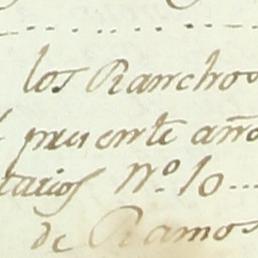 los Ranchos
presente año
tarios Nº. 10
de Ramos